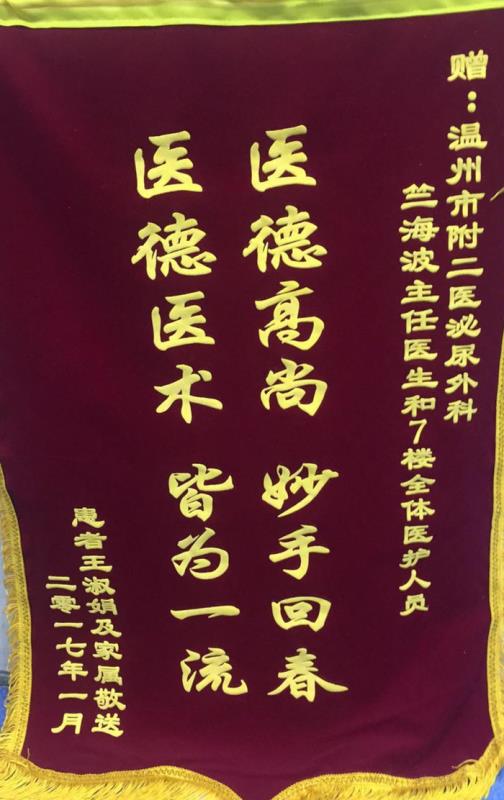 赠：温州市附二医泌尿外科
竺海波主任医生和7楼全体医护人员
医德高尚 妙手回春
医德医术 皆为一流
患者王淑娟及家属敬送
二零一七年一月